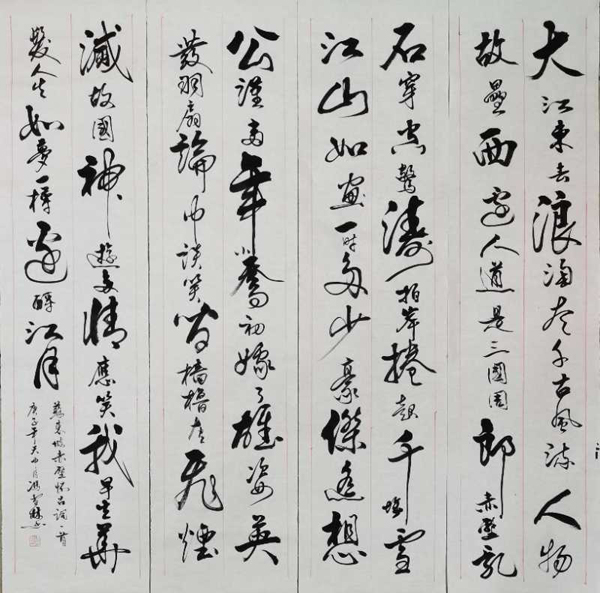 大江東去浪淘尽千古風流人物
故壘西邊人道是三國周郎赤壁乱
石穿空驚濤拍岸捲起千堆雪
江山如畫一时多少豪傑遙想
公謹當年小喬初嫁了雄姿英
發羽扇論巾談笑间檣櫓灰飛煙
滅故國神遊多情應笑我早生華
髮人生如夢一樽還酹江月
蘇東坡赤壁怀古詞一首
庚子年